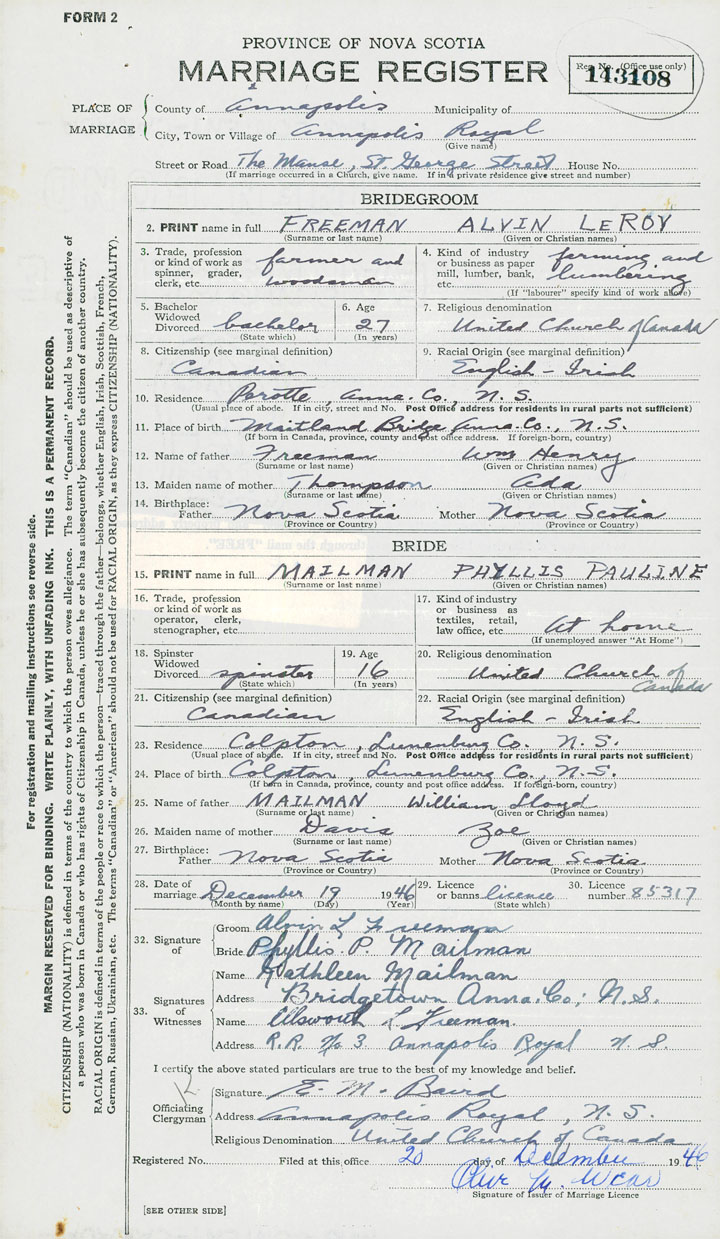 FORM 2
PROVINCE OF NOVA SCOTIA
MARRIAGE REGISTER
Reg. No. (Office use only)
143108
PLACE OF MARRIAGE
County of Annapolis Municipality of
City, Town or Village of Annapolis Royal
(Give name)
Street or Road The Manse, St. George Street House No.
(If marriage occurred in a Church, give name. If in a private residence give street and number)
BRIDEGROOM
2. PRINT name in full FREEMAN ALVIN LEROY
(Surname or last name) (Given or Christian names)
3. Trade, profession or kind of work as spinner, grader, clerk, etc. farmer and woodsman
4. Kind of industry or business as paper mill, lumber, bank, etc. farming and lumbering
(If "labourer" specify kind of work above)
5. Bachelor Widowed Divorced bachelor
(State which)
6. Age 27
(In years)
7. Religious denomination
United Church of Canada
8. Citizenship (see marginal definition)
Canadian
9. Racial Origin (see marginal definition)
English - Irish
10. Residence Perotte, Anna. Co., N. S.
(Usual place of abode. If in city, street and No. Post Office address for residents in rural parts not sufficient)
11. Place of birth Maitland Bridge Anna. Co., N. S.
(If born in Canada, province, county and post office address. If foreign-born, country)
12. Name of father Freeman Wm Henry
(Surname or last name) (Given or Christian names)
13. Maiden name of mother Thompson Ada
(Surname or last name) (Given or Christian names)
14. Birthplace: Father Nova Scotia Mother Nova Scotia
(Province or Country) (Province or Country)
BRIDE
15. PRINT name in full MAILMAN PHYLLIS PAULINE
(Surname or last name) (Given or Christian names)
16. Trade, profession or kind of work as operator, clerk, stenographer, etc.
17. Kind of industry or business as textiles, retail, law office, etc. At home
(If unemployed answer "At Home")
18. Spinster Widowed Divorced spinster
(State which)
19. Age 16
(In years)
20. Religious denomination
United Church of Canada
21. Citizenship (see marginal definition)
Canadian
22. Racial Origin (see marginal definition)
English - Irish
23. Residence Colpton, Lunenburg Co., N. S.
(Usual place of abode. If in city, street and No. Post Office address for residents in rural parts not sufficient)
24. Place of birth Colpton, Lunenburg Co., N. S.
(If born in Canada, province, county and post office address. If foreign-born, country)
25. Name of father MAILMAN William Lloyd
(Surname or last name) (Given or Christian names)
26. Maiden name of mother Davis Zoe
(Surname or last name) (Given or Christian names)
27. Birthplace: Father Nova Scotia Mother Nova Scotia
(Province or Country) (Province or Country)
28. Date of marriage December 19 1946
(Month by name) (Day) (Year)
29. Licence or banns licence
(State which)
30. Licence number 85317
32. Signature of
Groom Alvin L Freeman
Bride Phyllis P. Mailman
33. Signatures of Witnesses
Name Kathleen Mailman
Address Bridgetown Anna. Co; N. S.
Name Ellsworth L Freeman.
Address R. R. No 3 Annapolis Royal N. S.
I certify the above stated particulars are true to the best of my knowledge and belief.
Officiating Clergyman
Signature E. M. Baird
Address Annapolis Royal, N. S.
Religious Denomination United Church of Canada
Registered No. Filed at this office 20 day of December 1946
Signature of Issuer of Marriage Licence
[SEE OTHER SIDE]
For registration and mailing instructions see reverse side.
MARGIN RESERVED FOR BINDING. WRITE PLAINLY, WITH UNFADING INK. THIS IS A PERMANENT RECORD.
CITIZENSHIP (NATIONALITY) is defined in terms of the country to which the person owes allegiance. The term "Canadian" should be used as descriptive of
a person who was born in Canada or who has rights of Citizenship in Canada, unless he or she has subsequently become the citizen of another country.
RACIAL ORIGIN is defined in terms of the people or race to which the person—traced through the father—belongs, whether English, Irish, Scottish, French,
German, Russian, Ukrainian, etc. The terms "Canadian" or "American" should not be used for RACIAL ORIGIN, as they express CITIZENSHIP (NATIONALITY).